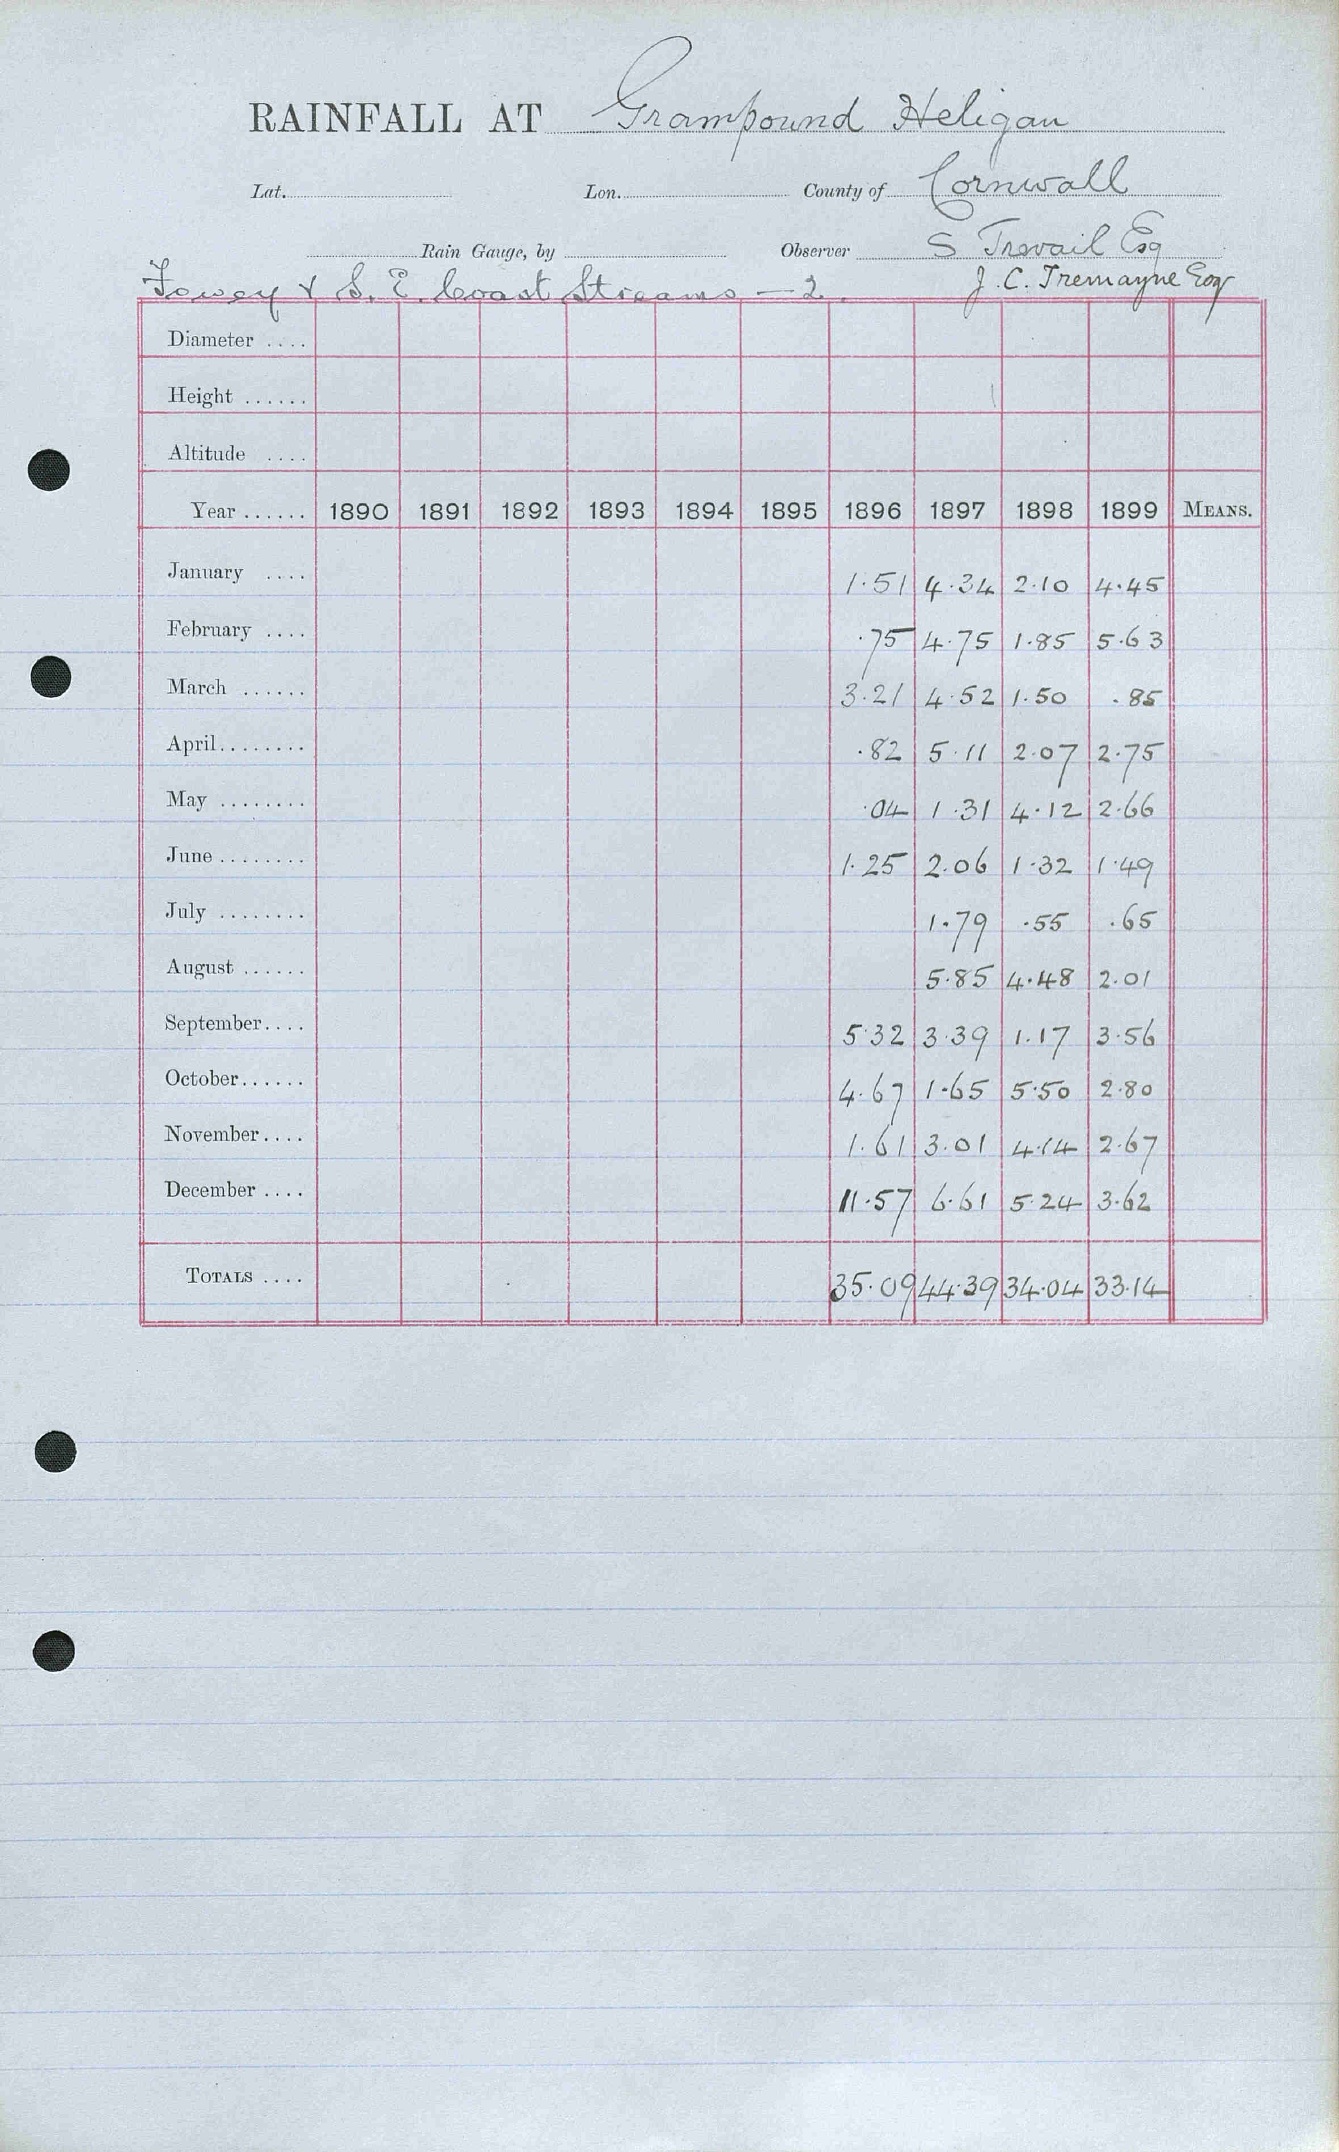 RAINFALL AT Grampound Heligan
Lat. Lon. County of Cornwall
Rain Gauge, by Observer S Trevail Esq
Fowey & S. E. Coast Streams — 2. J. C. Tremayne Esqr
Diameter ....
Height ......
Altitude ....
Year ...... 1890 1891 1892 1893 1894 1895 1896 1897 1898 1899 MEANS.
January .... 1.51 4.34 2.10 4.45
February .... .75 4.75 1.85 5.63
March ...... 3.21 4.52 1.50 .85
April........ .82 5.11 2.07 2.75
May ........ .04 1.31 4.12 2.66
June ........ 1.25 2.06 1.32 1.49
July ........ 1.79 .55 .65
August ...... 5.85 4.48 2.01
September.... 5.32 3.39 1.17 3.56
October...... 4.67 1.65 5.50 2.80
November.... 1.61 3.01 4.14 2.67
December .... 11.57 6.61 5.24 3.62
TOTALS .... 35.09 44.39 34.04 33.14